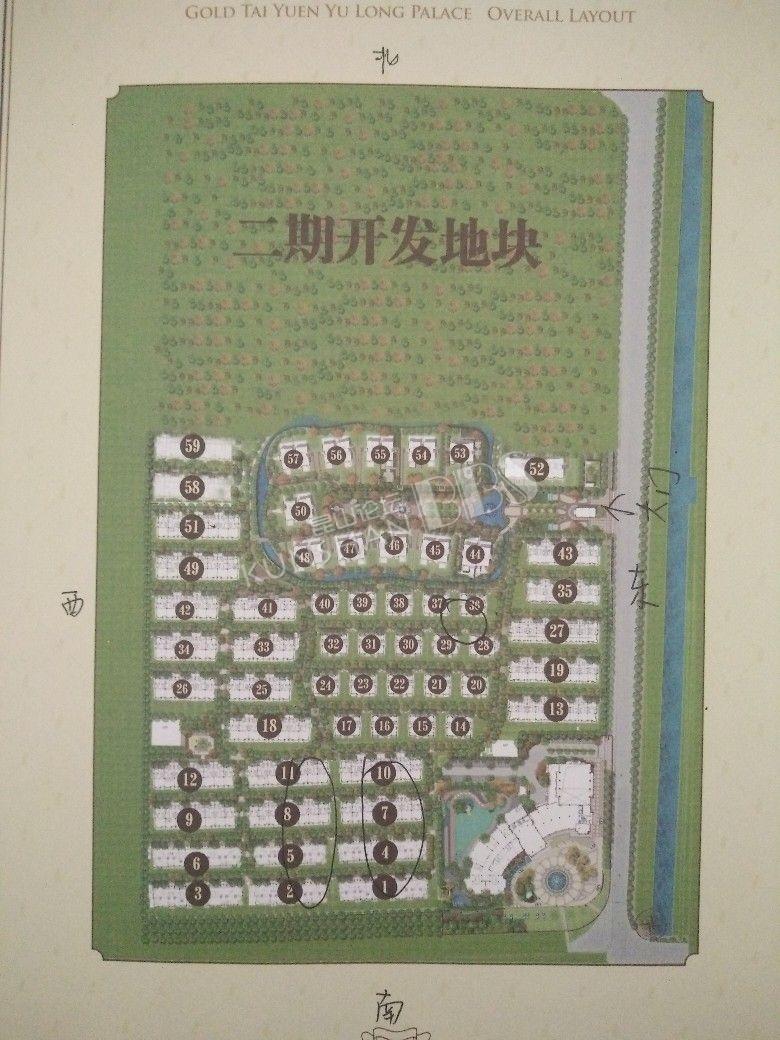 GOLD TAI YUEN YU LONG PALACE OVERALL LAYOUT
北
二期开发地块
59
57 56 55 54 53
52
58
50
昆山论坛
KUNSHAN BBS
大门
51
48 47 46 45 44
43
49
35
东
西
42 41 40 39 38 37 36
34 33 32 31 30 29 28
27
26 25 24 23 22 21 20
19
13
18 17 16 15 14
12 11 10
9 8 7
6 5 4
3 2 1
南